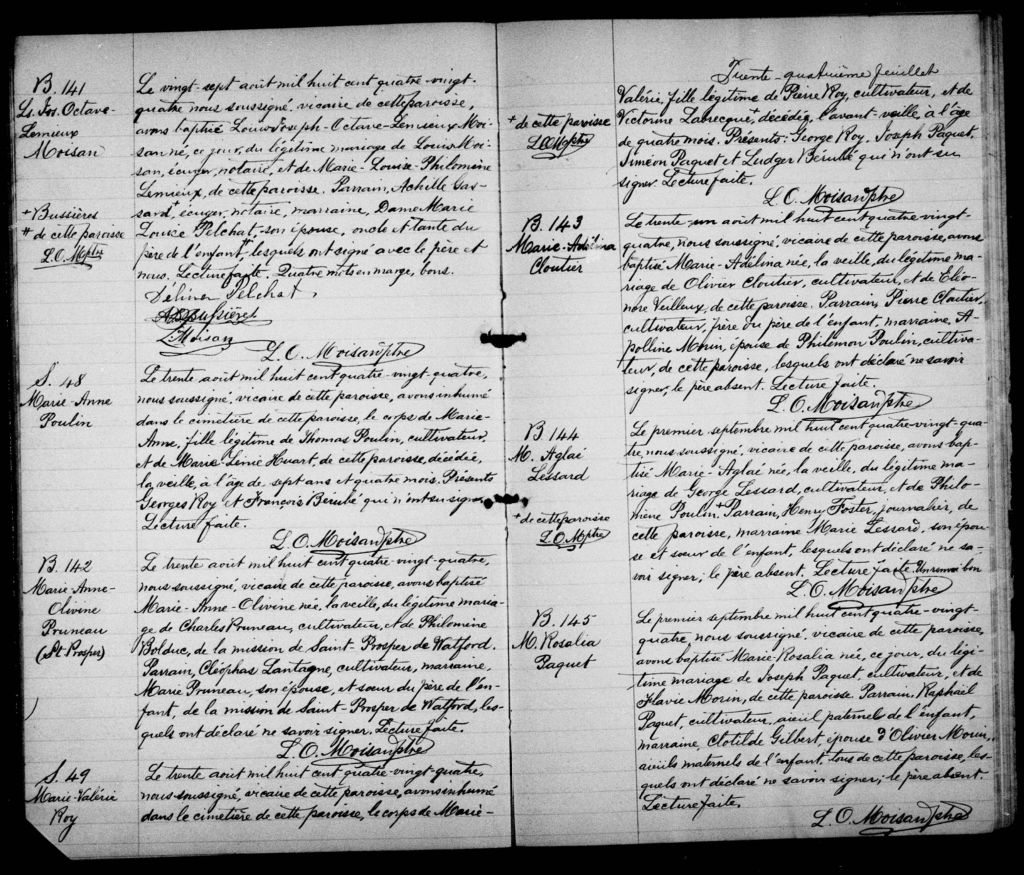 B. 141
Ls. Jos. Octave-
Lemieux
Moisan
Le vingt-sept août mil huit cent quatre-vingt-
quatre nous soussigné, vicaire de cette paroisse,
avons baptisé Louis Joseph-Octave-Lemieux-Moi-
san né, ce jour, du légitime mariage de Louis Moi-
san, écuyer, notaire, et de Marie-Louise-Philomène
Lemieux, de cette paroisse. Parrain, Achille Gas-
sard+, écuyer, notaire, marraine, Dame Marie
Louise Pelchat, son épouse, oncle et tante du
père de l'enfant#, lesquels ont signé avec le père et
nous. Lecture faite. Quatre mots en marge, bons.
+ Bussières
# de cette paroisse
L.O.M ptre
Délina Pelchat,
L. Moisan
L. O. Moisan ptre
S. 48
Marie-Anne
Poulin
Le trente août mil huit cent quatre-vingt-quatre,
nous soussigné, vicaire de cette paroisse, avons inhumé
dans le cimetière de cette paroisse, le corps de Marie-
Anne, fille légitime de Thomas Poulin, cultivateur,
et de Marie Huart, de cette paroisse, décédée,
la veille, à l'âge de sept ans et quatre mois. Présents
Georges Roy et François Bérubé qui n'ont su signer
Lecture faite.
L. O. Moisan ptre
B. 142
Marie-Anne-
Olivine
Pruneau
(St Prosper)
Le trente août mil huit cent quatre-vingt-quatre,
nous soussigné, vicaire de cette paroisse, avons baptisé
Marie-Anne-Olivine née, la veille, du légitime maria-
ge de Charles Pruneau, cultivateur, et de Philomène
Bolduc, de la mission de Saint-Prosper de Watford.
Parrain, Cléophas Lantagne, cultivateur, marraine,
Marie Pruneau, son épouse, et sœur du père de l'en-
fant, de la mission de Saint-Prosper de Watford, les-
quels ont déclaré ne savoir signer. Lecture faite.
L. O. Moisan ptre
S. 49
Marie-Valérie
Roy
Le trente août mil huit cent quatre-vingt-quatre,
nous soussigné, vicaire de cette paroisse, avons inhumé
dans le cimetière de cette paroisse, le corps de Marie-
Trente-quatrième feuillet
Valérie, fille légitime de Pierre Roy, cultivateur, et de
Victorine Labrecque, décédée, l'avant-veille, à l'âge
de quatre mois. Présents: George Roy. Joseph Paquet
Siméon Paquet et Ludger Bérubé qui n'ont su
signer. Lecture faite.
+ de cette paroisse
L.O.M ptre
L. O. Moisan ptre
B. 143
Marie-Adélina
Cloutier
Le trente-un août mil huit cent quatre-vingt-
quatre, nous soussigné, vicaire de cette paroisse, avons
baptisé Marie-Adélina née, la veille, du légitime ma-
riage de Olivier Cloutier, cultivateur, et de Eléo-
nore Veilleux, de cette paroisse. Parrain, Pierre Cloutier,
cultivateur, père du père de l'enfant, marraine, A-
polline Morin, épouse de Philemon Poulin, cultiva-
teur, de cette paroisse, lesquels ont déclaré ne savoir
signer, le père absent. Lecture faite.
L. O. Moisan ptre
B. 144
M. Aglaé
Lessard
Le premier septembre mil huit cent quatre-vingt-qua-
tre, nous soussigné, vicaire de cette paroisse, avons bap-
tisé Marie-Aglaé née, la veille, du légitime ma-
riage de George Lessard, cultivateur, et de Philo-
mène Poulin+. Parrain, Henry Foster, journalier, de
cette paroisse, marraine Marie Lessard, son épou-
se et sœur de l'enfant, lesquels ont déclaré ne sa-
voir signer; le père absent. Lecture faite. Un renvoi bon
+ de cette paroisse
L.O.M ptre
L. O. Moisan ptre
B. 145
M. Rosalia
Paquet
Le premier septembre mil huit cent quatre-vingt-
quatre nous soussigné, vicaire de cette paroisse,
avons baptisé Marie-Rosalia née, ce jour, du légi-
time mariage de Joseph Paquet, cultivateur, et de
Flavie Morin, de cette paroisse. Parrain, Raphaël
Paquet, cultivateur, aïeul paternels de l'enfant,
marraine, Clotilde Gilbert, épouse d'Olivier Morin,
aïeuls maternels de l'enfant, tous de cette paroisse, les-
quels ont déclaré ne savoir signer; le père absent.
Lecture faite.
L. O. Moisan ptre